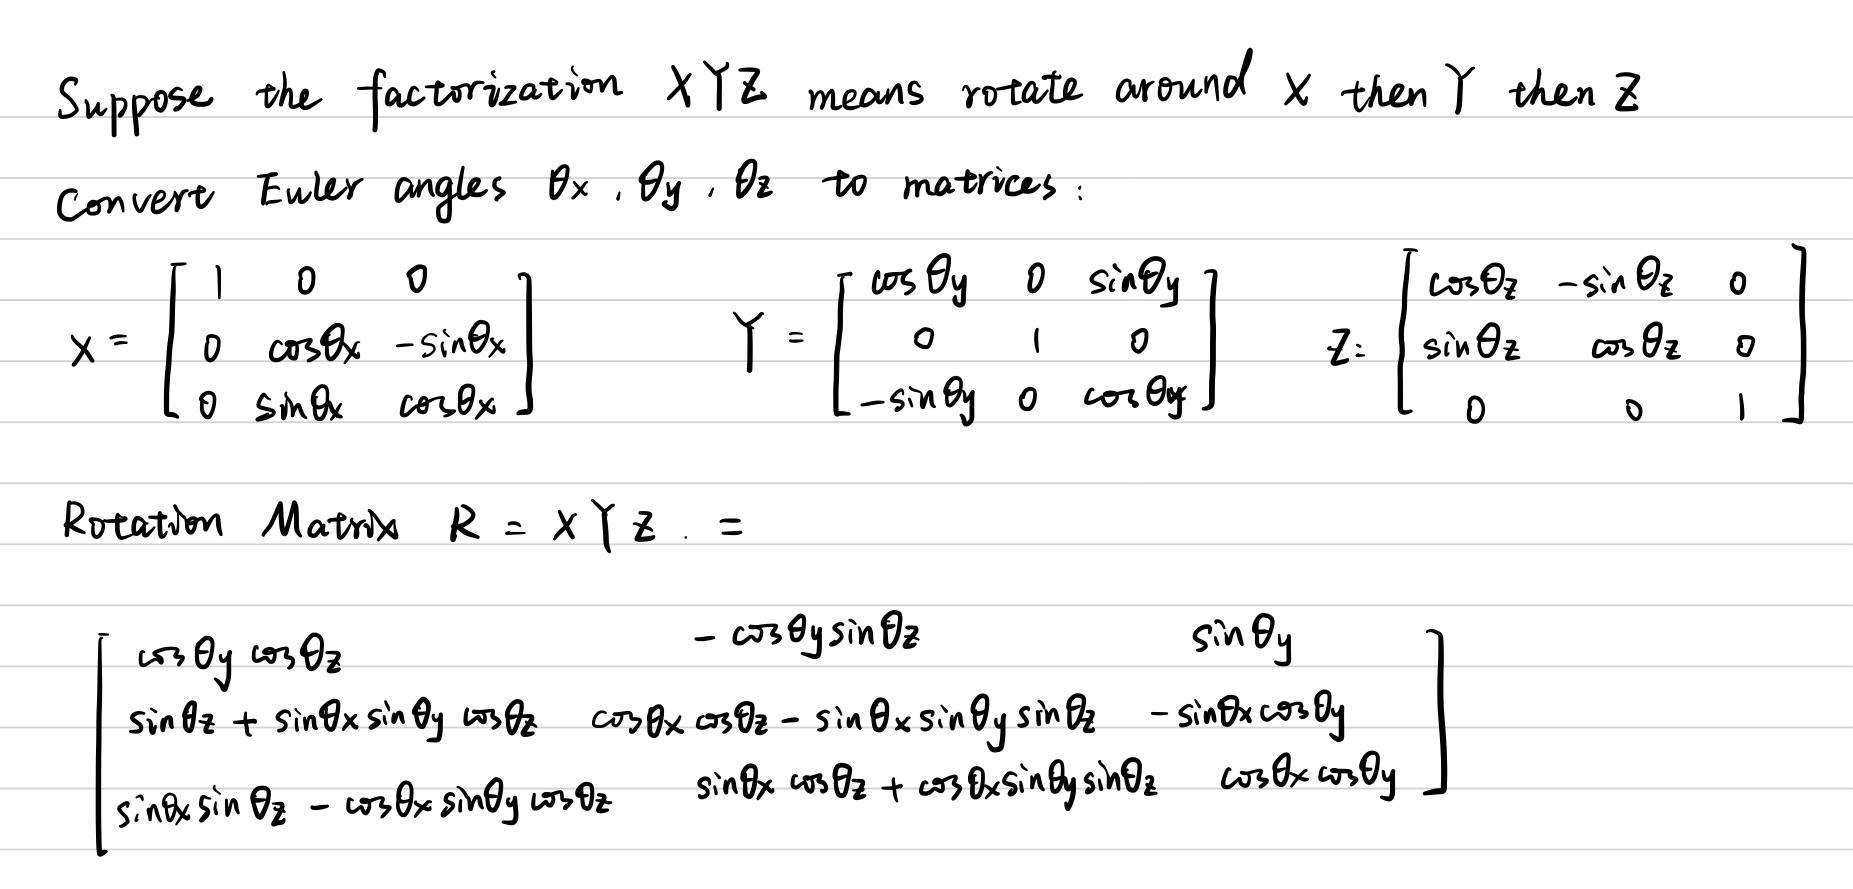 Suppose the factorization XYZ means rotate around X then Y then Z
Convert Euler angles θx, θy, θz to matrices:
X = [ 1 0 0 ; 0 cosθx -sinθx ; 0 sinθx cosθx ] Y = [ cosθy 0 sinθy ; 0 1 0 ; -sinθy 0 cosθy ] Z = [ cosθz -sinθz 0 ; sinθz cosθz 0 ; 0 0 1 ]
Rotation Matrix R = XYZ. =
[ cosθy cosθz -cosθy sinθz sinθy
sinθz + sinθx sinθy cosθz cosθx cosθz - sinθx sinθy sinθz -sinθx cosθy
sinθx sinθz - cosθx sinθy cosθz sinθx cosθz + cosθx sinθy sinθz cosθx cosθy ]